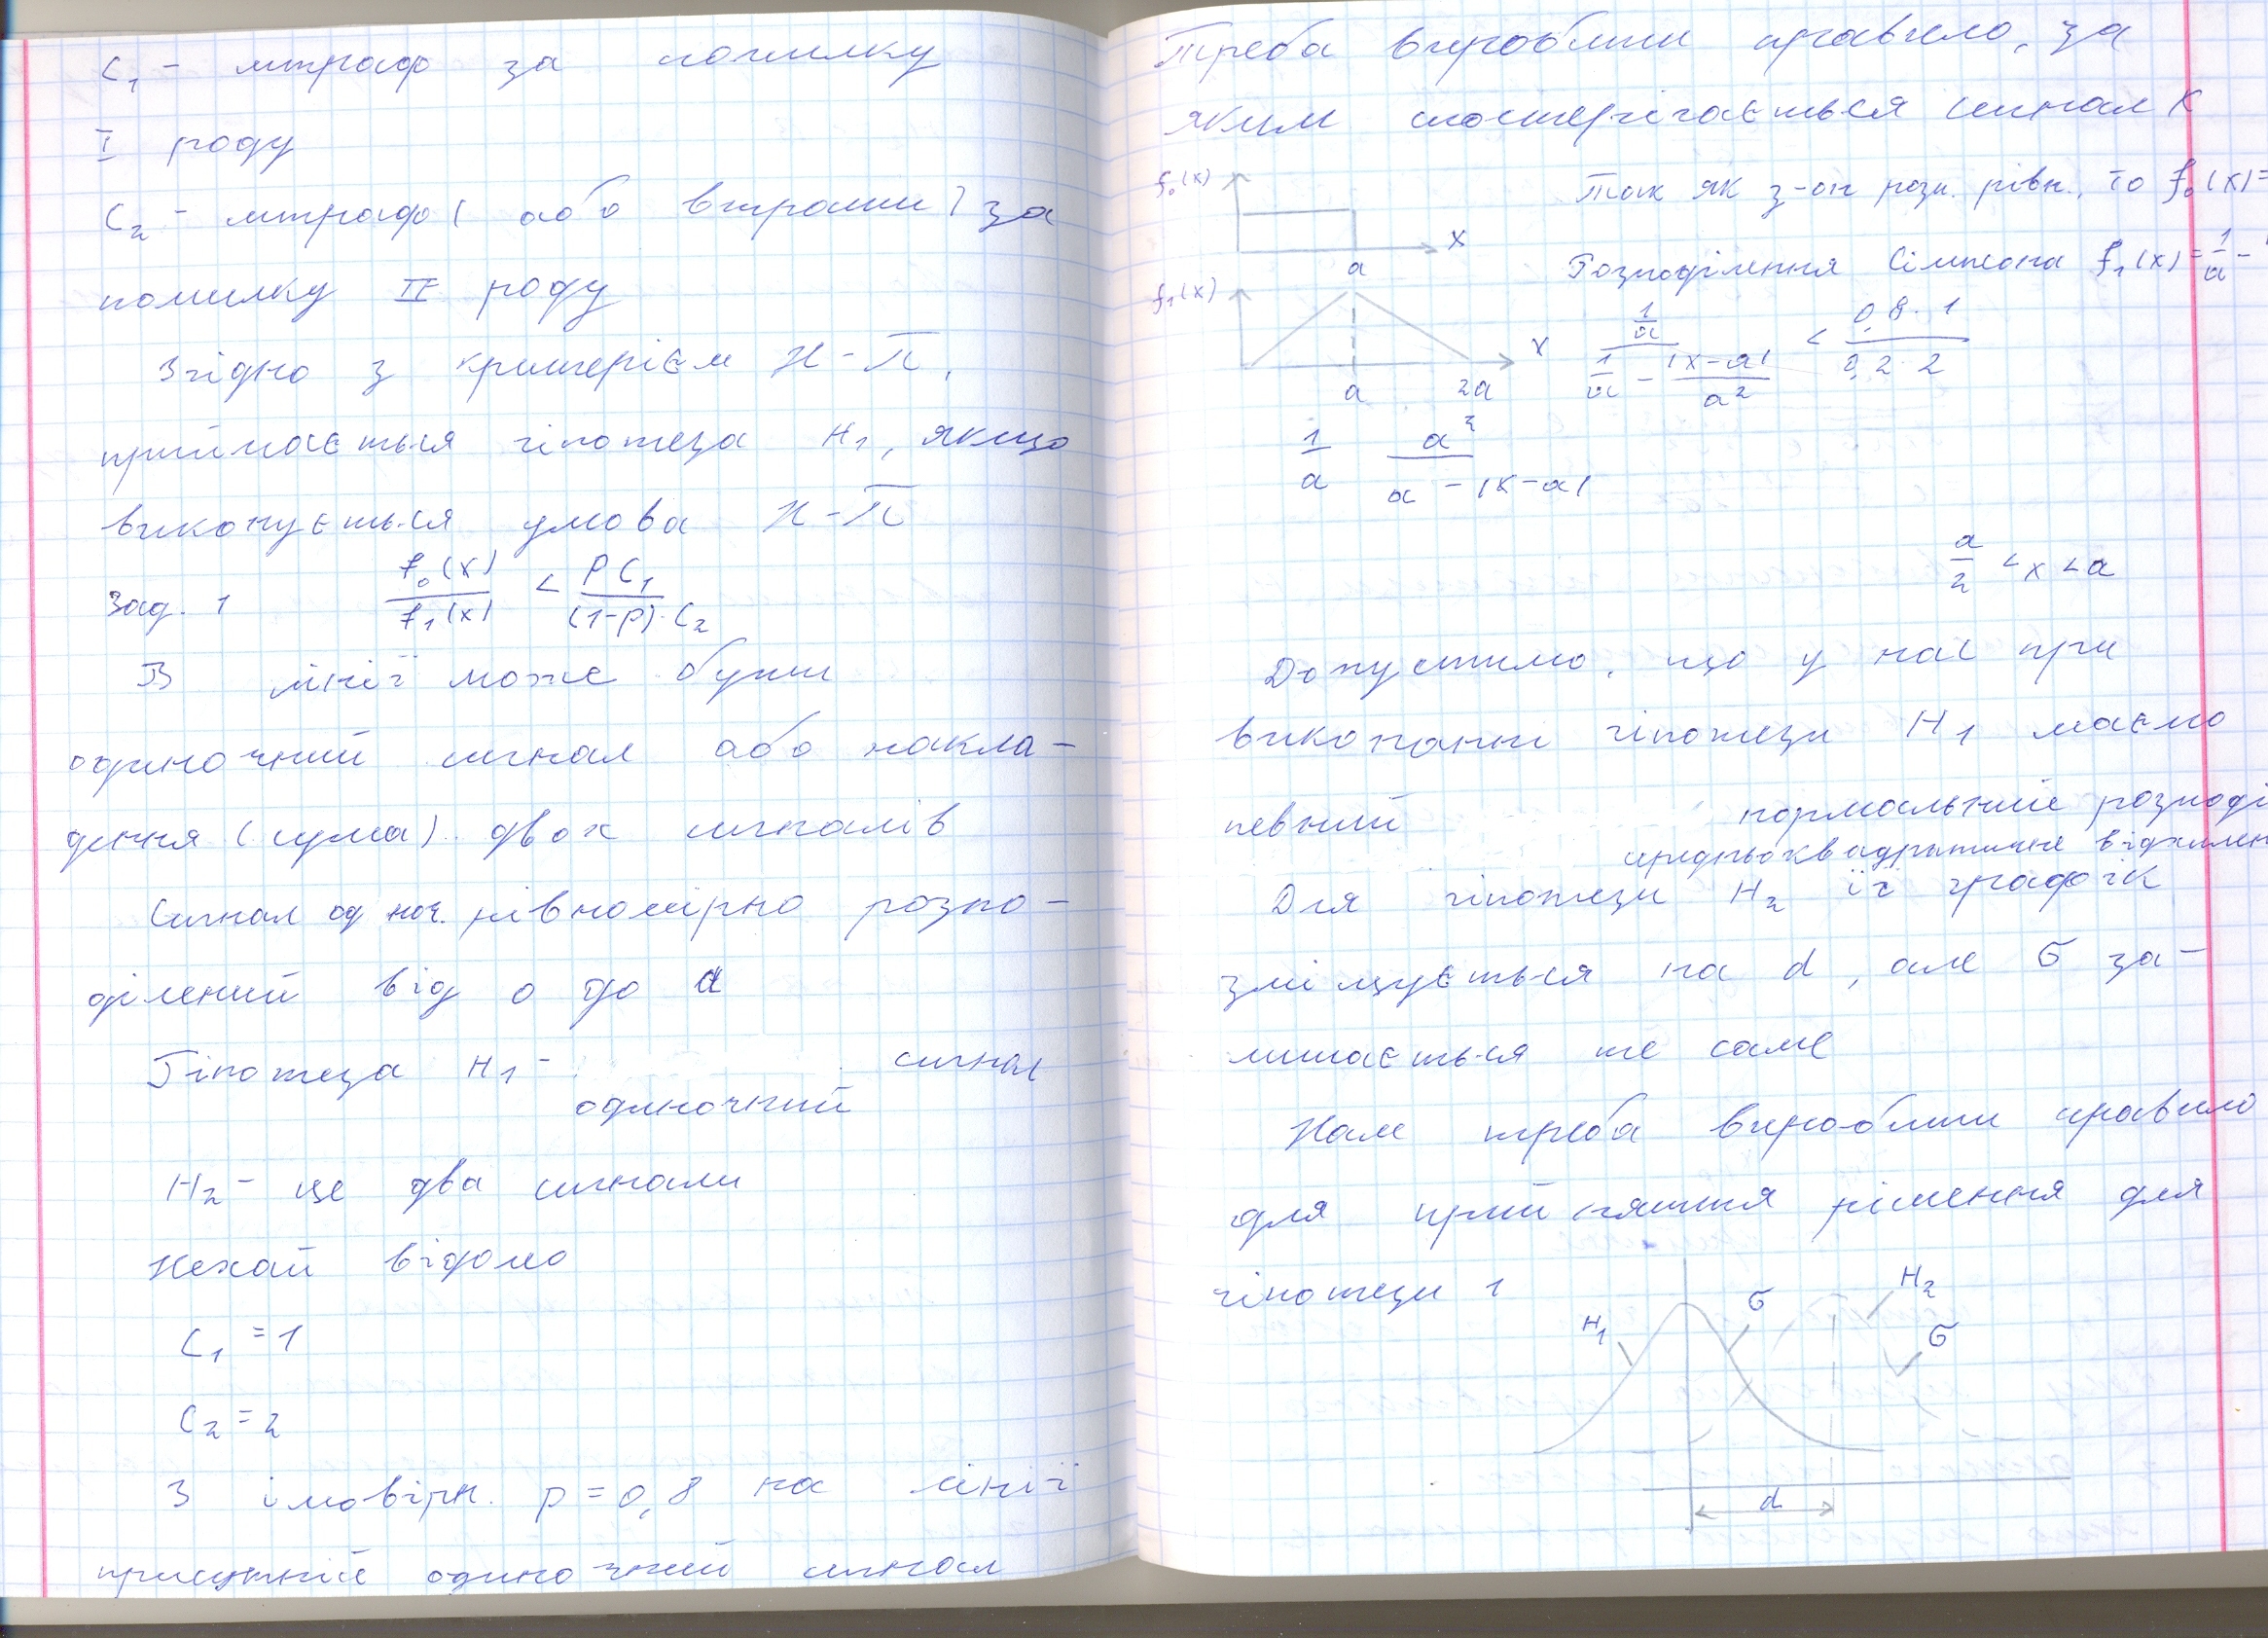 C₁ - штраф за помилку
I роду
C₂ - штраф ( або втрати ) за
помилку II роду
Згідно з критерієм Н-П,
приймається гіпотеза H₁, якщо
виконується умова Н-П
Зад. 1 f₀(x)/f₁(x) < pC₁/((1-p)·C₂)
В лінії може бути
одиночний сигнал або накла-
дення (сума) двох сигналів
Сигнал одноч. рівномірно розпо-
ділений від 0 до a
Гіпотеза H₁ - одиночний сигнал
H₂ - це два сигнали
Нехай відомо
C₁ = 1
C₂ = 2
З імовірн. p = 0,8 на лінії
присутній одиночний сигнал
Треба виробити правило, за
яким спостерігається сигнал x
f₀(x)
x
a
Так як з-он розп. рівн., то f₀(x)=
Розподілення Сімпсона f₁(x)=1/a -
f₁(x)
x
a 2a
(1/a)/(1/a - |x-a|/a²) < (0,8·1)/(0,2·2)
1/a a²/(a - |x-a|)
a/2 < x < a
Допустимо, що у нас при
виконанні гіпотези H₁ маємо
певний нормальний розподі
середньоквадратичне відхилен
Для гіпотези H₂ її графік
зміщується на d, але σ за-
лишається те саме
Нам треба виробити правило
для прийняття рішення для
гіпотези 1
H₁
σ
H₂
σ
d